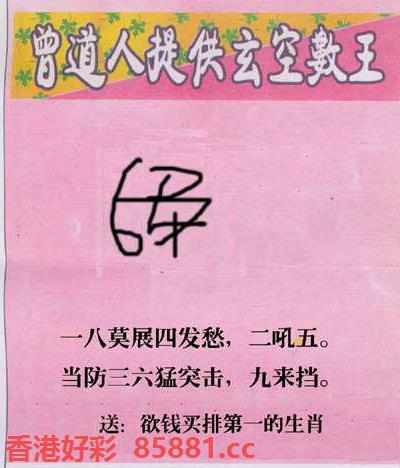 曾道人提供玄空數王
一八莫展四发愁，二吼五。
当防三六猛突击，九来挡。
送：欲钱买排第一的生肖
香港好彩 85881.cc